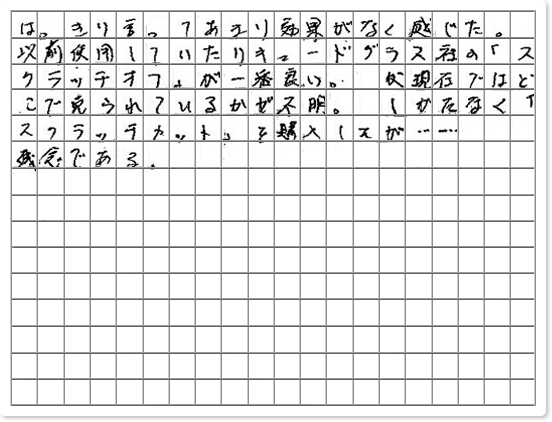 は。きり言ってあまり効果がなく感じた。
以前使用していたリキュードグラス社の「ス
クラッチオフ」が一番良い。 が現在ではど
こで売られているかぜ不明。 しかたなく「
スクラッチカット」を購入したが……
残念である。